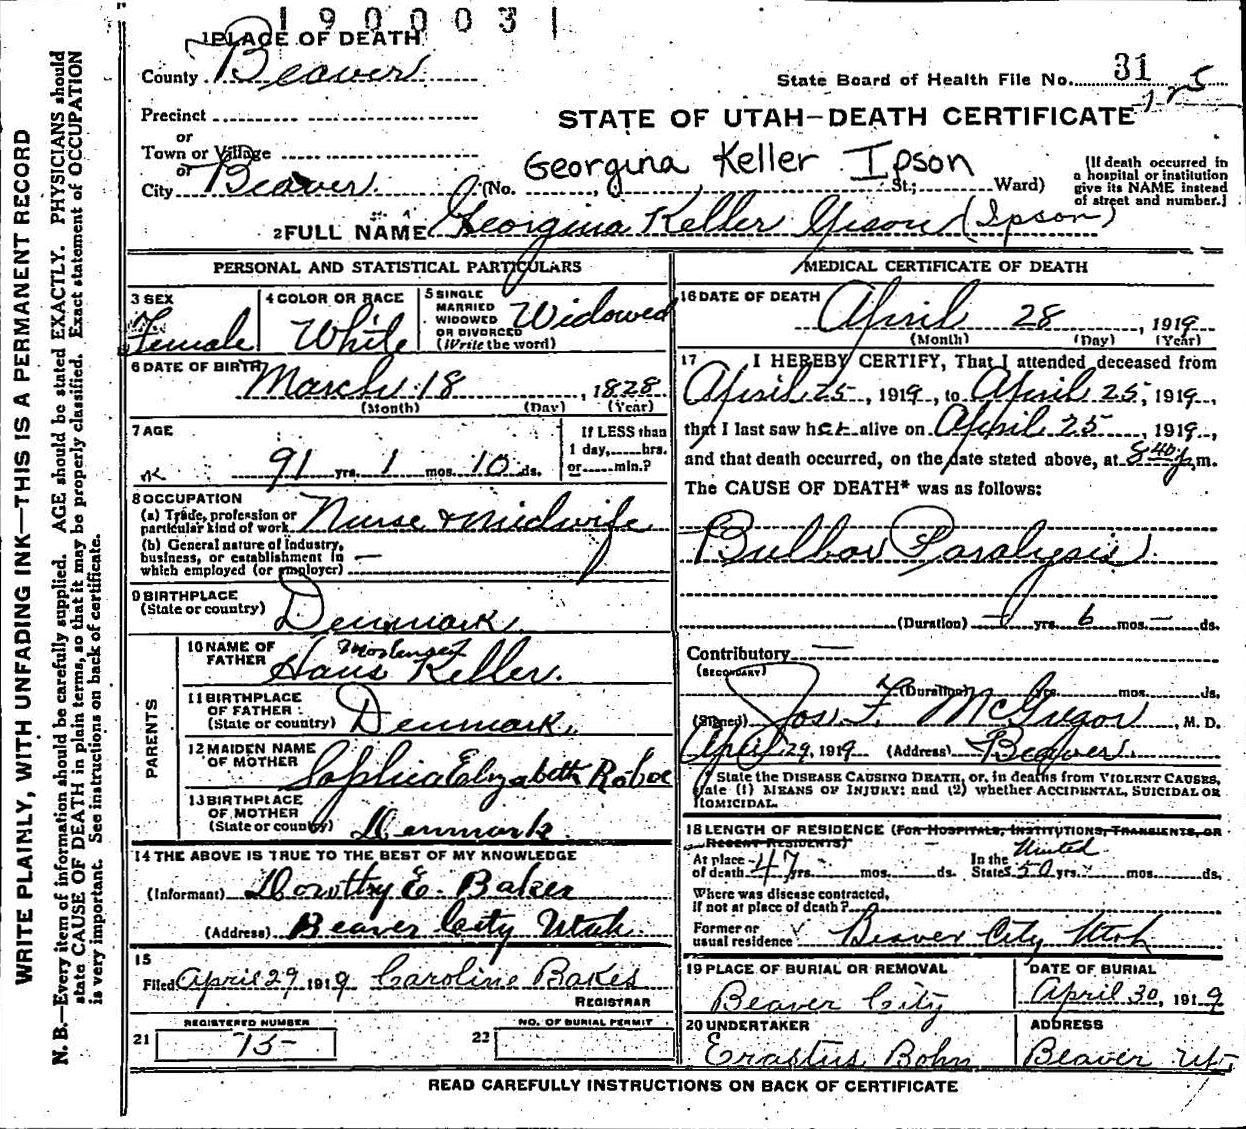 190003
1 PLACE OF DEATH
County Beaver
State Board of Health File No. 31
125
Precinct
STATE OF UTAH—DEATH CERTIFICATE
or
Town or Village
or
City Beaver
Georgina Keller Ipson
(No. St.; Ward)
(If death occurred in
a hospital or institution
give its NAME instead
of street and number.]
2 FULL NAME Georgina Keller Ypson (Ipson)
PERSONAL AND STATISTICAL PARTICULARS
3 SEX
Female
4 COLOR OR RACE
White
5 SINGLE
MARRIED
WIDOWED
OR DIVORCED
(Write the word)
Widowed
6 DATE OF BIRTH
March 18, 1828
(Month) (Day) (Year)
7 AGE
91 yrs. 1 mos. 10 ds.
If LESS than
1 day, hrs.
or min.?
8 OCCUPATION
(a) Trade, profession or
particular kind of work Nurse & Midwife
(b) General nature of industry,
business, or establishment in
which employed (or employer)
9 BIRTHPLACE
(State or country) Denmark
PARENTS
10 NAME OF
FATHER Hans Keller
11 BIRTHPLACE
OF FATHER
(State or country) Denmark
12 MAIDEN NAME
OF MOTHER Sophia Elizabeth
13 BIRTHPLACE
OF MOTHER
(State or country) Denmark
14 THE ABOVE IS TRUE TO THE BEST OF MY KNOWLEDGE
(Informant) Dorothy E. Baker
(Address) Beaver City Utah
15
Filed April 29 1919 Caroline Bakes
REGISTRAR
21 REGISTERED NUMBER
75
22 NO. OF BURIAL PERMIT
MEDICAL CERTIFICATE OF DEATH
16 DATE OF DEATH
April 28, 1919
(Month) (Day) (Year)
17 I HEREBY CERTIFY, That I attended deceased from
April 25, 1919, to April 25, 1919,
that I last saw her alive on April 25, 1919,
and that death occurred, on the date stated above, at 8 40 p m.
The CAUSE OF DEATH* was as follows:
Bulbar Paralysis
(Duration) — yrs. 6 mos. — ds.
Contributory —
(SECONDARY)
(Duration) yrs. mos. ds.
(Signed) Jos. F. McGregor, M. D.
April 29, 1919 (Address) Beaver
* State the DISEASE CAUSING DEATH, or, in deaths from VIOLENT CAUSES,
state (1) MEANS OF INJURY; and (2) whether ACCIDENTAL, SUICIDAL OR
HOMICIDAL.
18 LENGTH OF RESIDENCE (FOR HOSPITALS, INSTITUTIONS, TRANSIENTS, OR
RECENT RESIDENTS)
At place
of death 47 yrs. mos. ds.
In the United
States 50 yrs. mos. ds.
Where was disease contracted,
If not at place of death?
Former or
usual residence Beaver City Utah
19 PLACE OF BURIAL OR REMOVAL
Beaver City
DATE OF BURIAL
April 30, 1919
20 UNDERTAKER
Erastus Bohn
ADDRESS
Beaver Ut
READ CAREFULLY INSTRUCTIONS ON BACK OF CERTIFICATE
WRITE PLAINLY, WITH UNFADING INK—THIS IS A PERMANENT RECORD
N. B.—Every item of information should be carefully supplied. AGE should be stated EXACTLY. PHYSICIANS should
state CAUSE OF DEATH in plain terms, so that it may be properly classified. Exact statement of OCCUPATION
is very important. See instructions on back of certificate.